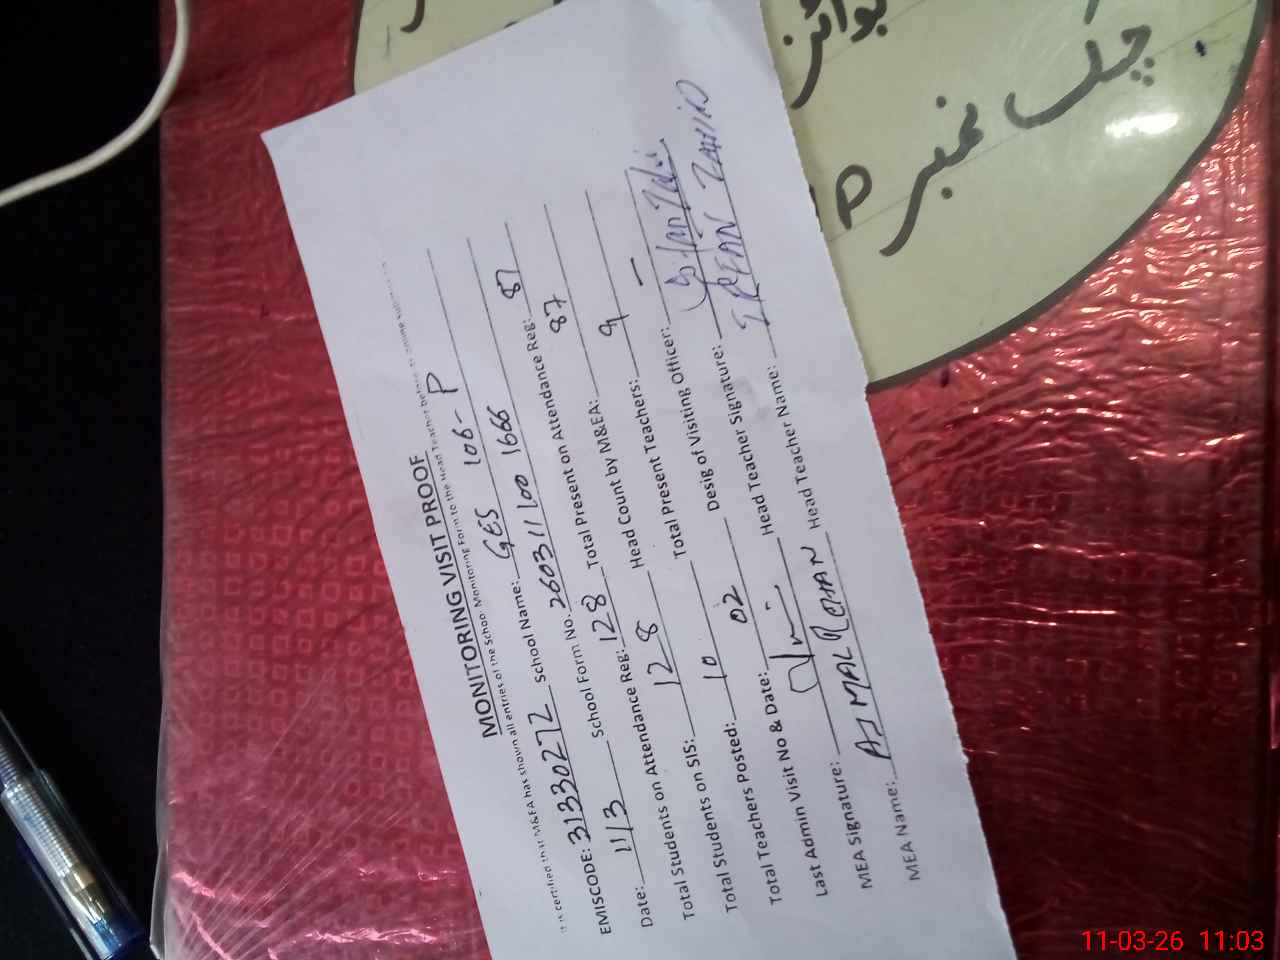 MONITORING VISIT PROOF
It is certified that M&EA has shown all entries of the School Monitoring Form to the Head Teacher before
EMISCODE: 31330272 School Name: GES 106-P
Date: 11/3 School Form No. 260311100 1666
Total Students on Attendance Reg: 128 Total Present on Attendance Reg: 87
Total Students on SIS: 128 Head Count by M&EA: 87
Total Teachers Posted: 10 Total Present Teachers: 9
Last Admin Visit No & Date: 02 Desig of Visiting Officer: -
MEA Signature: Head Teacher Signature:
MEA Name: AJMAL REHAN Head Teacher Name: IRFAN ZAHID
چک نمبر
P
11-03-26 11:03